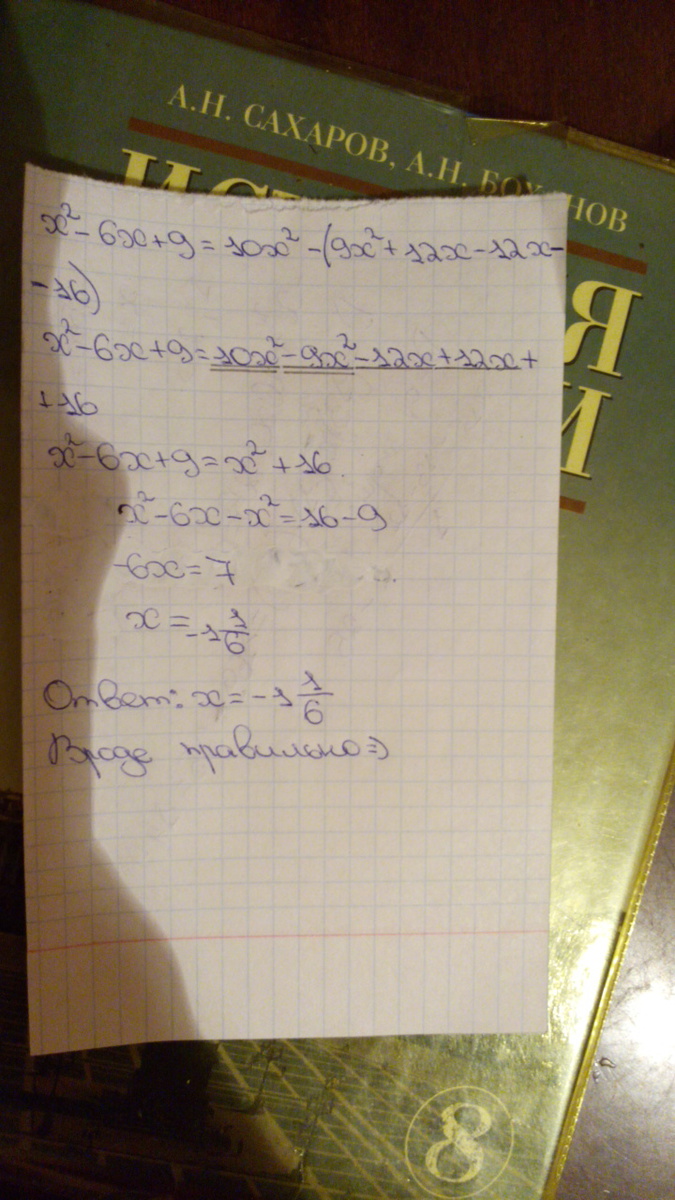 А.Н. САХАРОВ, А.Н. БОХАНОВ
Я
И
x²-6x+9=10x²-(9x²+12x-12x-
-16)
x²-6x+9=10x²-9x²-12x+12x+
+16
x²-6x+9=x²+16
x²-6x-x²=16-9
-6x=7
x=-1 1/6
Ответ: x=-1 1/6
Вроде правильно=)
8